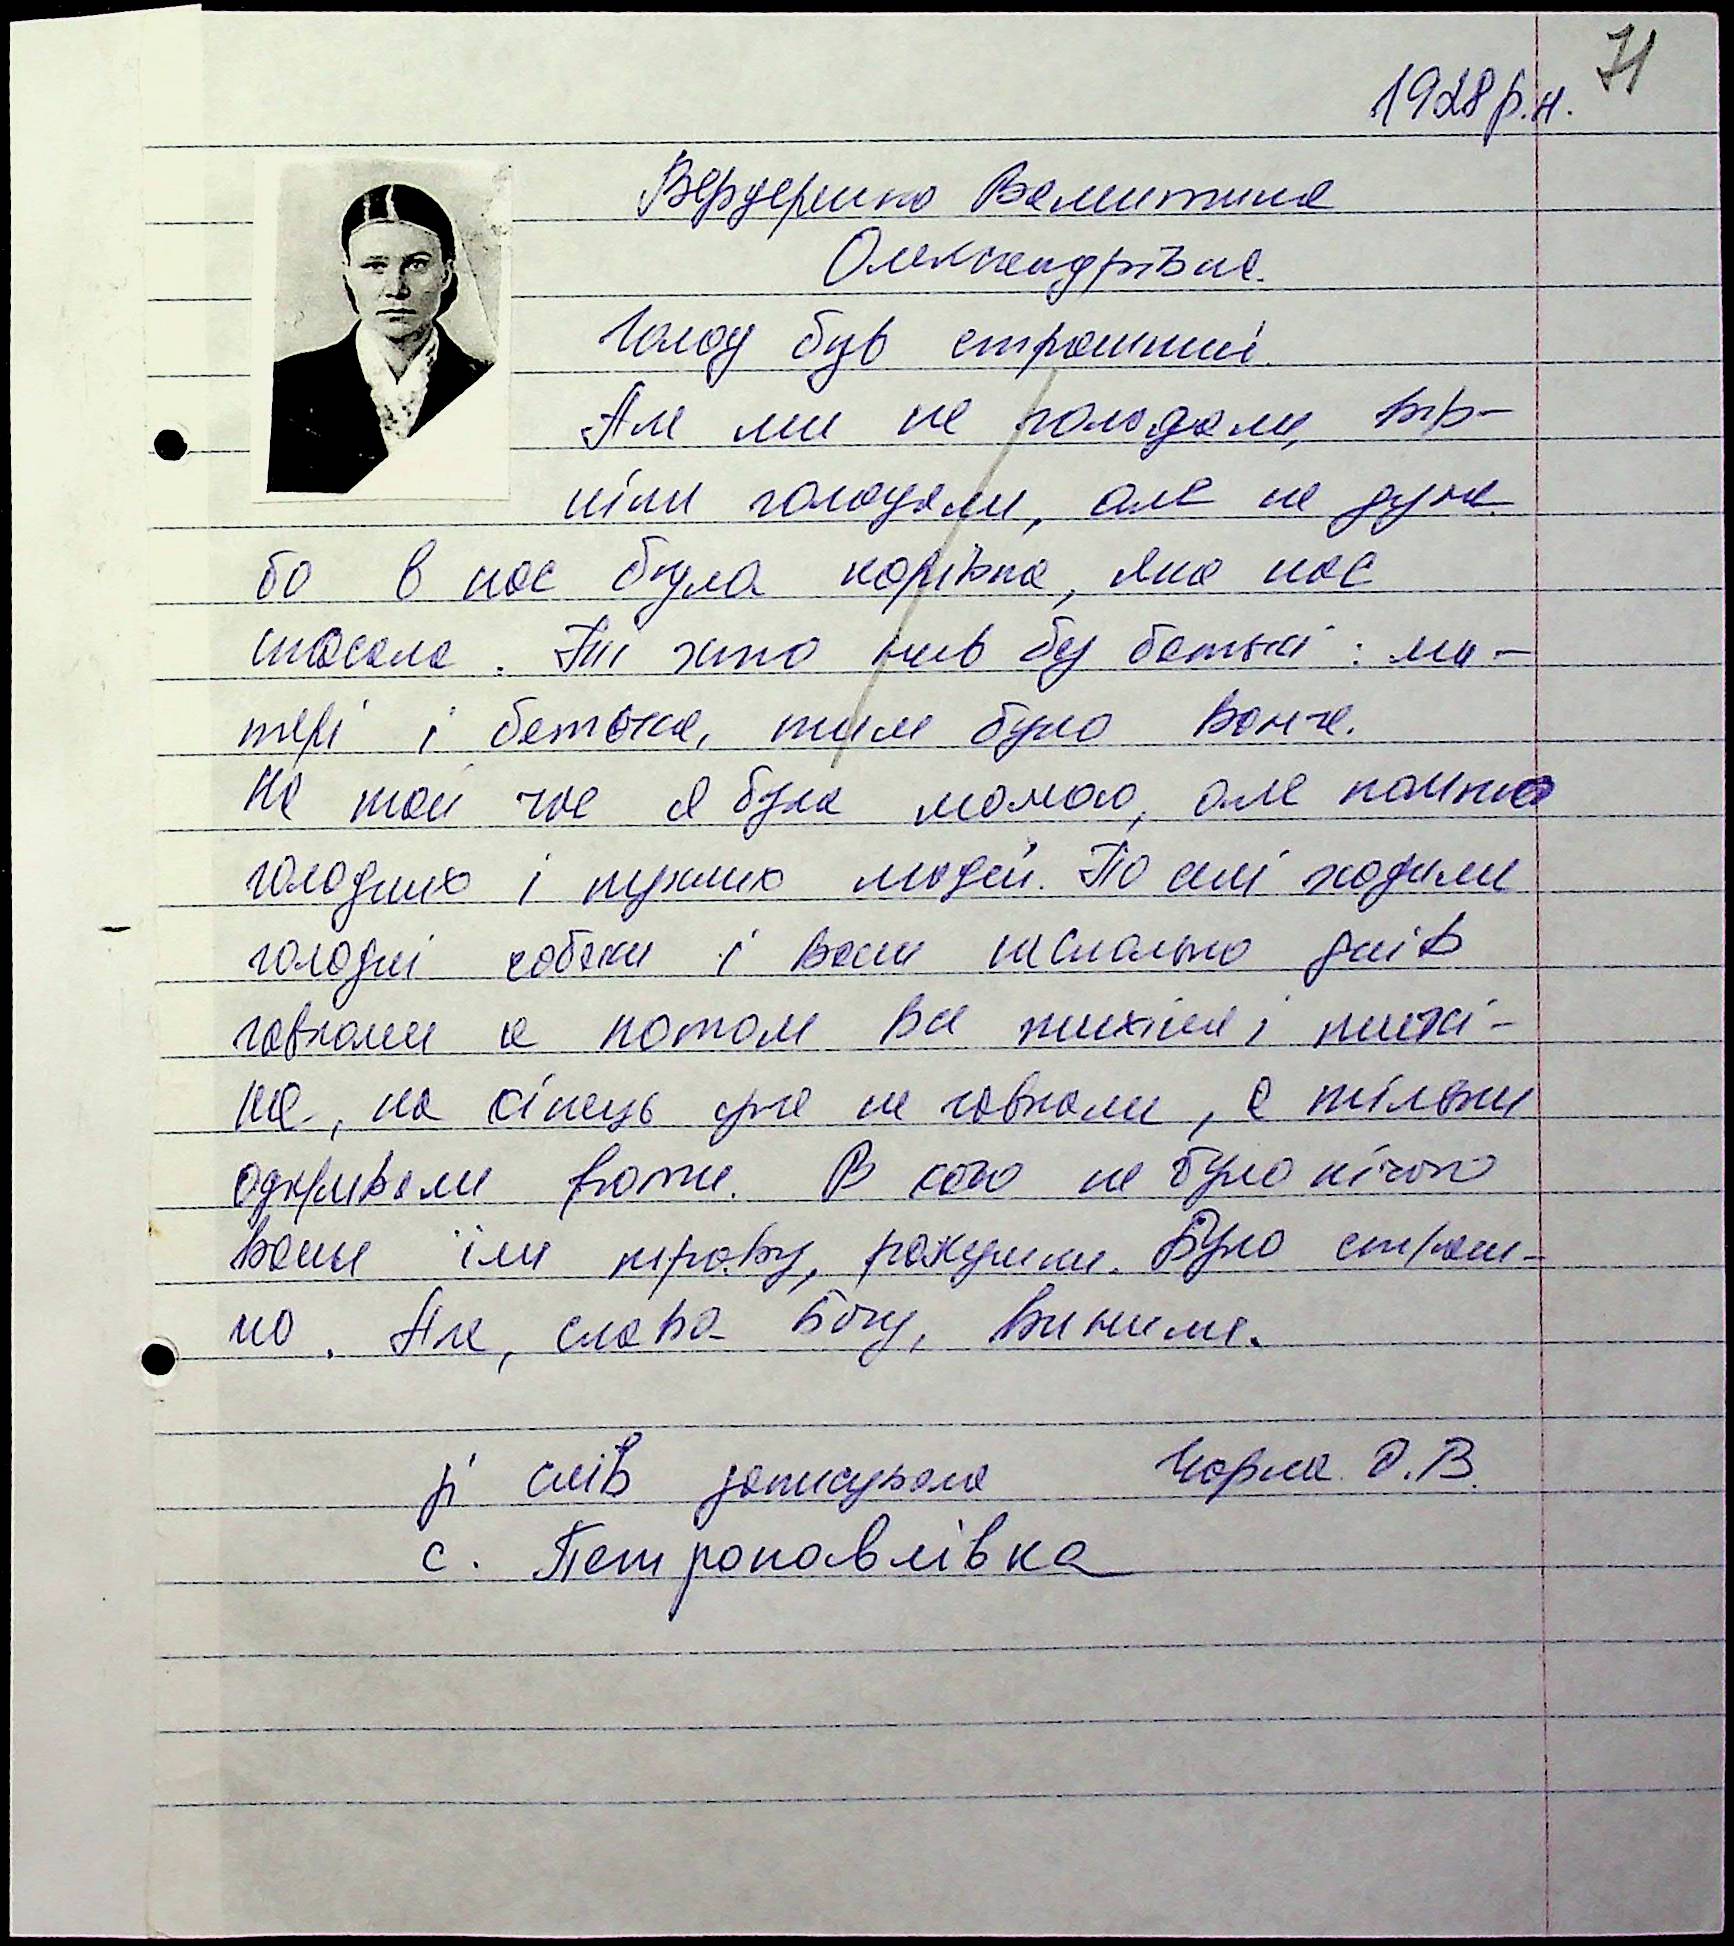 71
1928 р.н.
Вердеренко Валентина
Олександрівна.
Голод був страшний.
Але ми не голодали, вір-
ніш голодали, але не дуже
бо в нас була корівка, яка нас
спасала. Ті хто жив без батьків: ма-
тері і батька, тим було важче.
На той час я була малою, але помню
голодних і пухлих людей. По селі ходили
голодні собаки і вони декілька днів
гавкали а потом все тихіше і тихі-
ше, на кінець уже не гавкали, а тільки
одкривали роти. В кого не було нічого
вони їли траву, рахушки. Було страш-
но. Але, слава Богу, вижили.
зі слів записувала Чорна О.В.
с. Петропавлівка